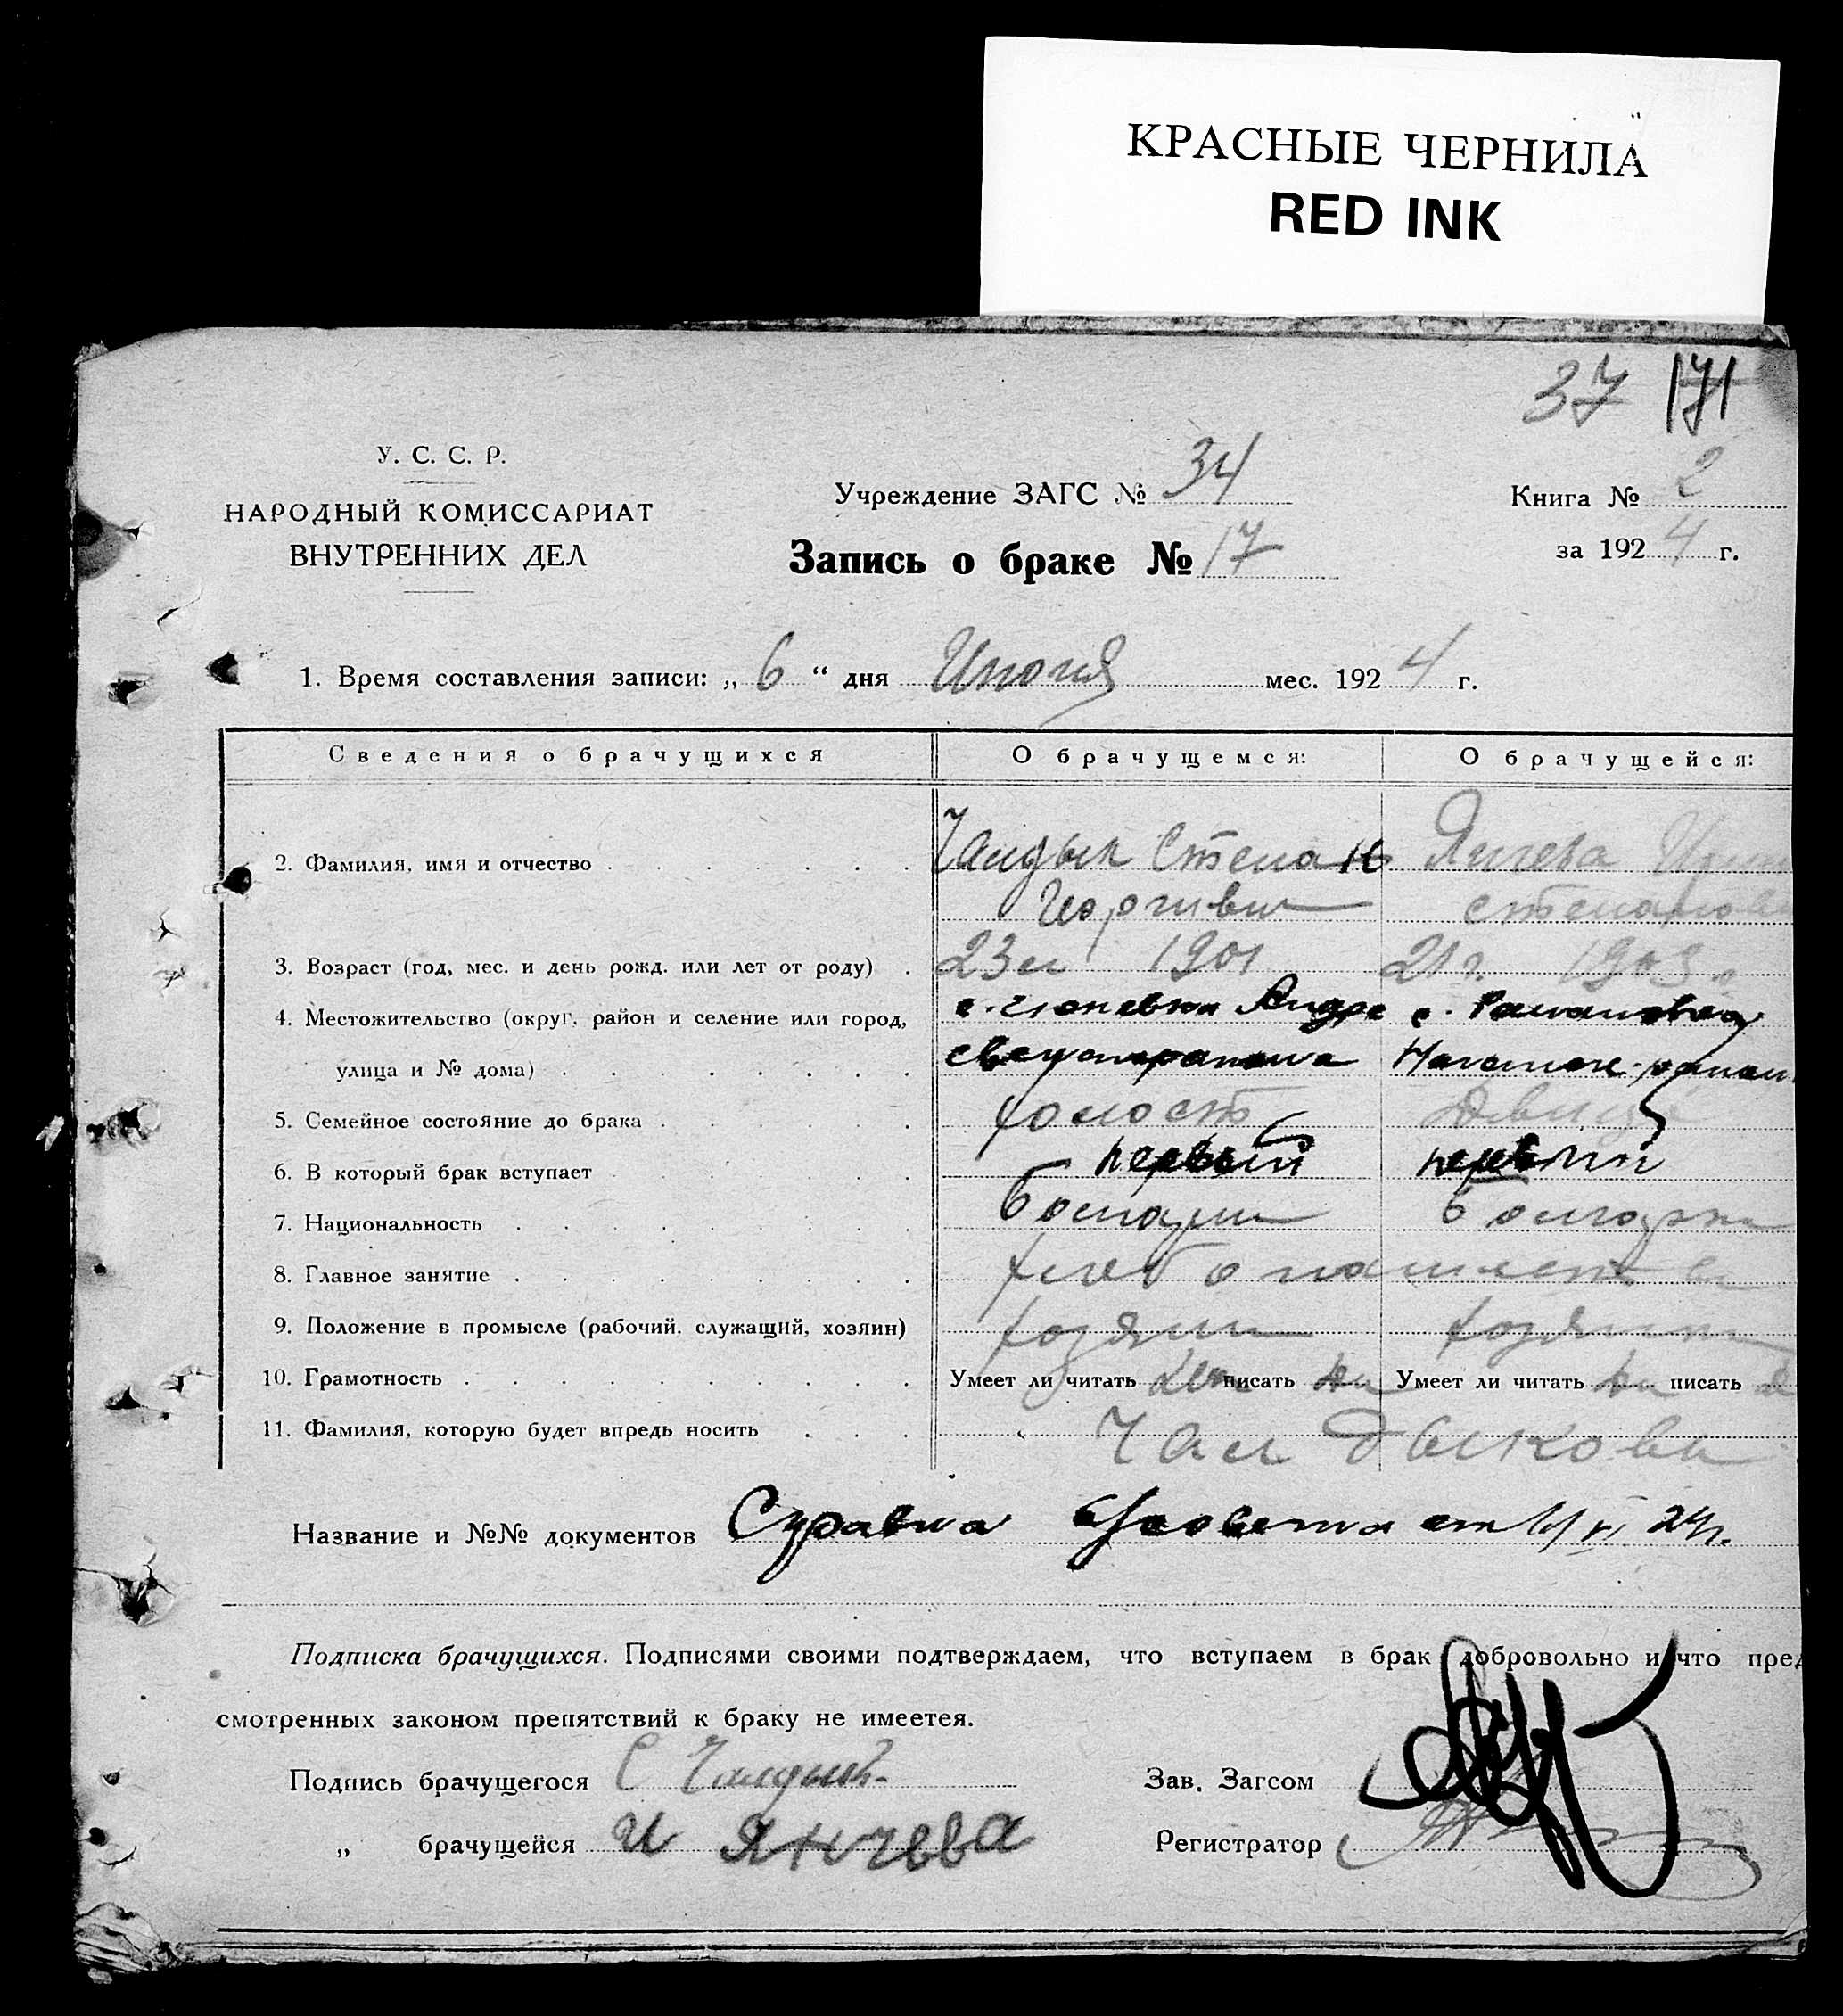 КРАСНЫЕ ЧЕРНИЛА
RED INK
37 171
У. С. С. Р.
НАРОДНЫЙ КОМИССАРИАТ
ВНУТРЕННИХ ДЕЛ
Учреждение ЗАГС № 34
Запись о браке № 17
Книга № 2
за 1924 г.
1. Время составления записи: „ 6 “ дня Июня мес. 1924 г.
Сведения о брачущихся О брачущемся: О брачущейся:
2. Фамилия, имя и отчество Чалдык Степан Янчева
Георгиевич Степановн
3. Возраст (год, мес. и день рожд. или лет от роду) 23 л 1901 21 г. 1903
4. Местожительство (округ, район и селение или город, с. с. Романовка
улица и № дома)
5. Семейное состояние до брака холост девица
6. В который брак вступает первый первый
7. Национальность болгарин болгарка
8. Главное занятие хлебопашество
9. Положение в промысле (рабочий, служащий, хозяин) хозяин хозяин
10. Грамотность Умеет ли читать писать да Умеет ли читать да писать
11. Фамилия, которую будет впредь носить Чалдыковы
Название и №№ документов Справка от VI 24 г.
Подписка брачущихся. Подписями своими подтверждаем, что вступаем в брак добровольно и что пред
смотренных законом препятствий к браку не имеетея.
Подпись брачущегося С Чалдык
Зав. Загсом
„ брачущейся И Янчева
Регистратор